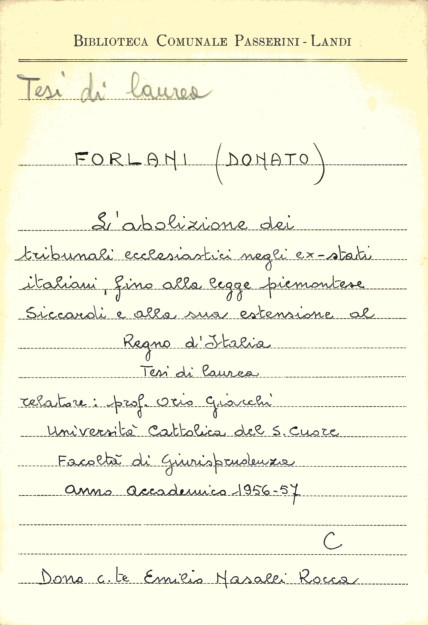 BIBLIOTECA COMUNALE PASSERINI - LANDI
Tesi di laurea
FORLANI (DONATO)
L'abolizione dei
tribunali ecclesiastici negli ex-stati
italiani, fino alla legge piemontese
Siccardi e alla sua estensione al
Regno d'Italia
Tesi di laurea
relatore: prof. Orio Giacchi
Università Cattolica del S. Cuore
Facoltà di Giurisprudenza
anno accademico 1956-57
C
Dono c.te Emilio Nasalli Rocca